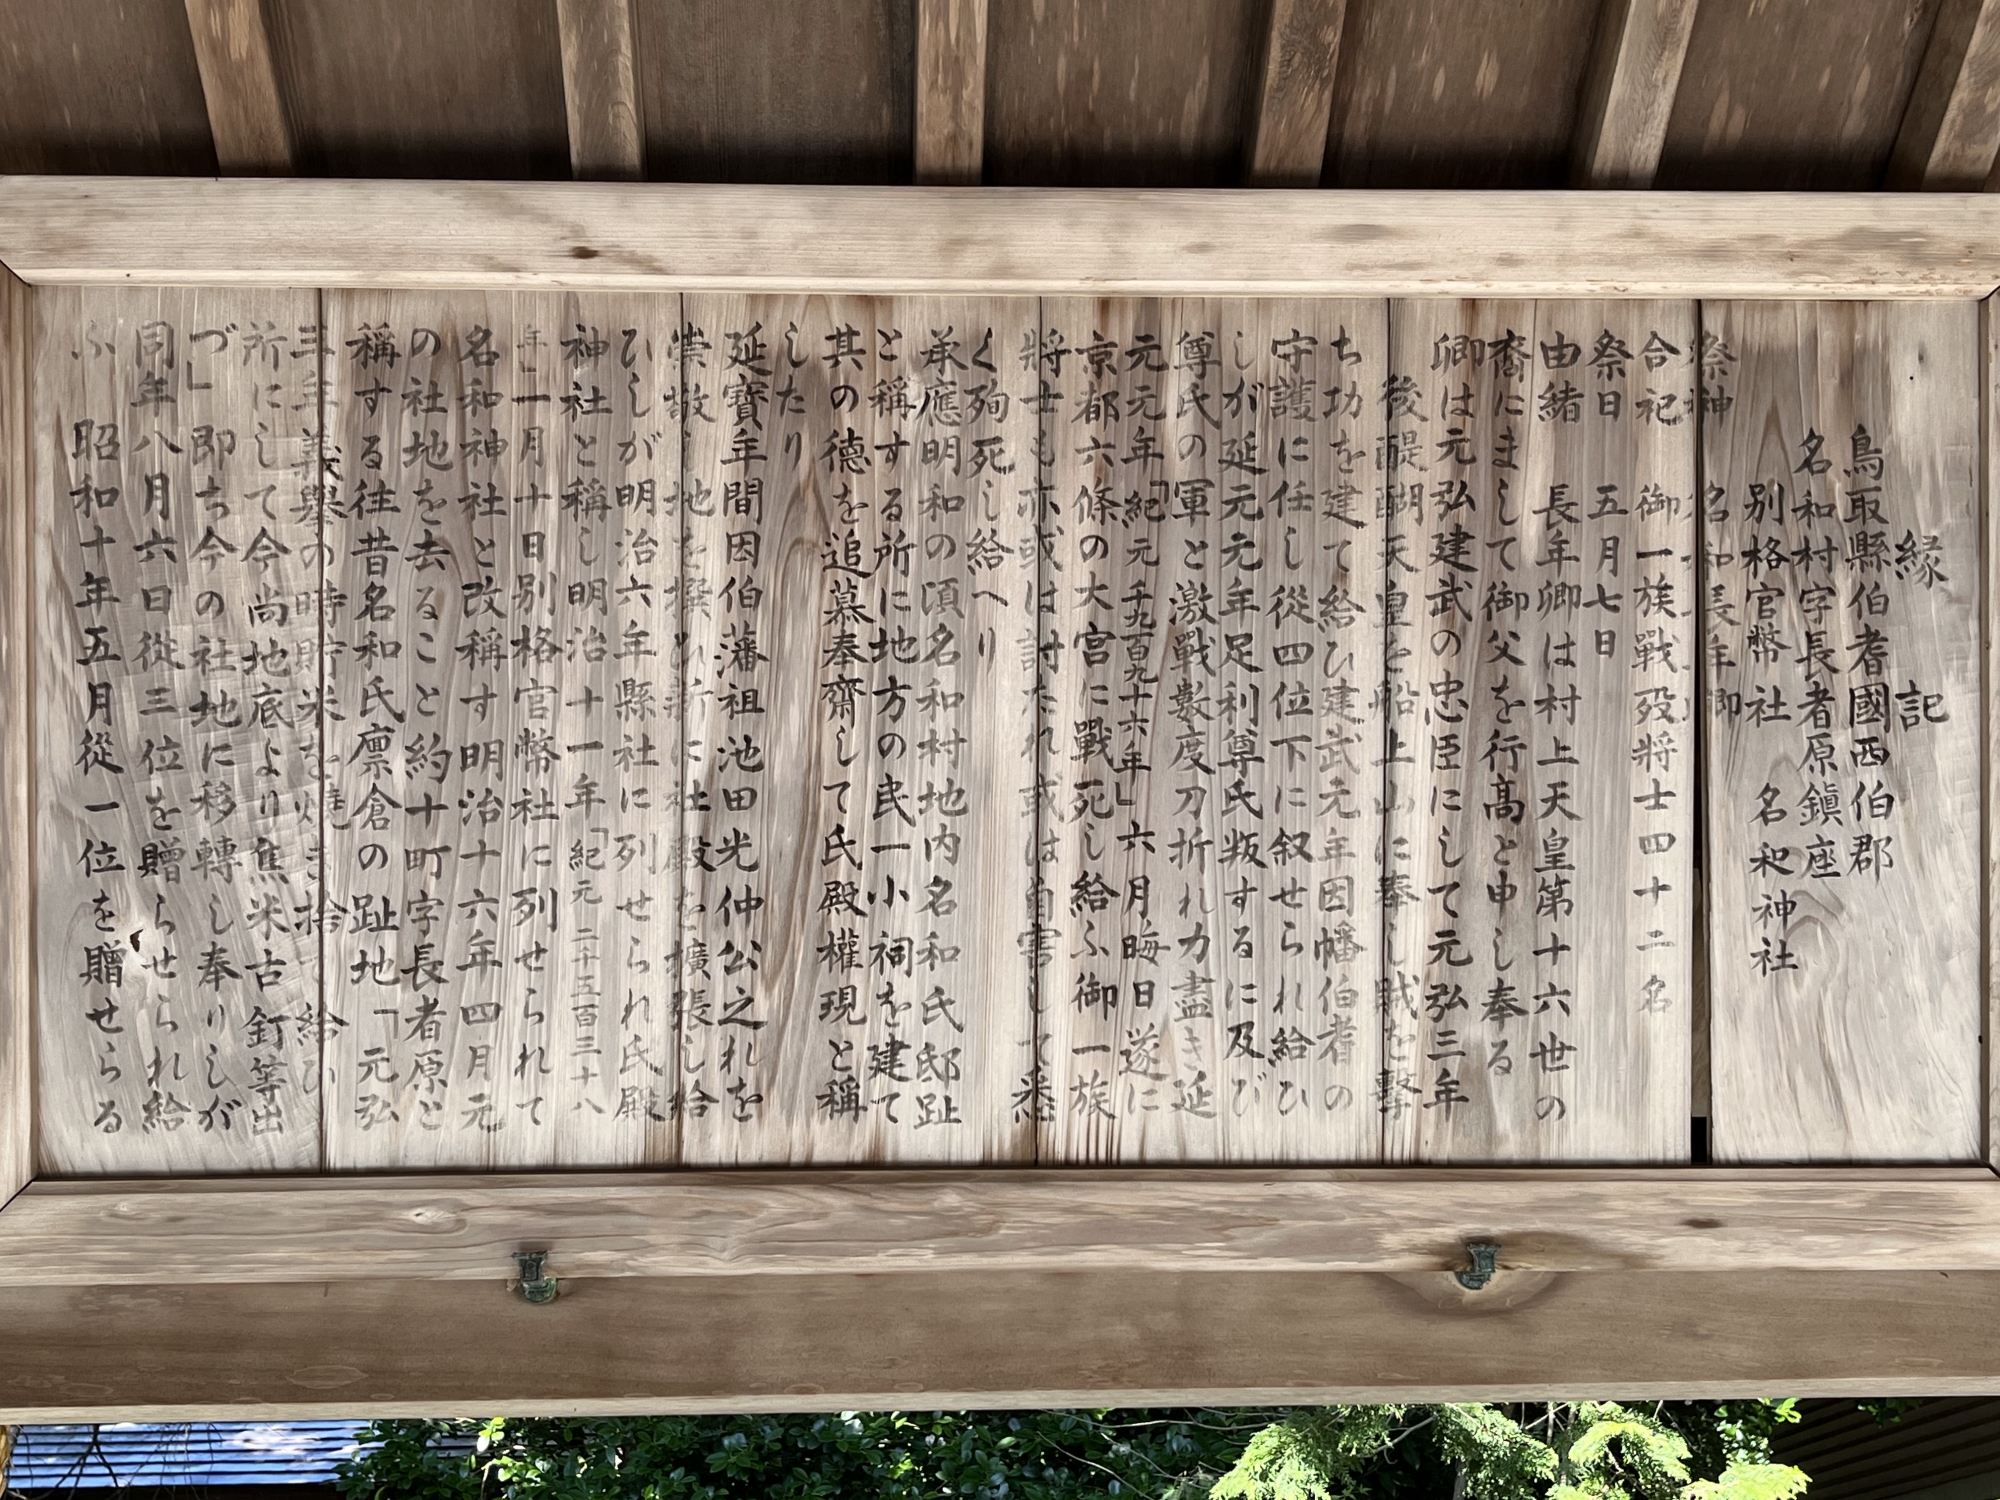 縁記
鳥取縣伯耆國西伯郡
名和村字長者原鎭座
別格官幣社 名和神社
祭神 名和長年卿
合祀 御一族戰歿將士四十二名
祭日 五月七日
由緒 長年卿は村上天皇第十六世の
裔にまして御父を行髙と申し奉る
卿は元弘建武の忠臣にして元弘三年
後醍醐天皇を船上山に奉し賊を擊
ち功を建て給ひ建武元年因幡伯耆の
守護に任し從四位下に叙せられ給ひ
しが延元元年足利尊氏叛するに及び
尊氏の軍と激戰數度刀折れ力盡き延
元元年「紀元千九百九十六年」六月晦日遂に
京都六條の大宮に戰死し給ふ御一族
將士も亦或は討たれ或は自害して悉
く殉死し給へり
承應明和の頃名和村地内名和氏邸趾
と稱する所に地方の民一小祠を建て
其の德を追慕奉齋して氏殿權現と稱
したり
延寶年間因伯藩祖池田光仲公之れを
崇敬し地を撰ひ新に社殿を擴張し給
ひしが明治六年縣社に列せられ氏殿
神社と稱し明治十一年「紀元二千五百三十八
年」一月十日別格官幣社に列せられて
名和神社と改稱す明治十六年四月元
の社地を去ること約十町字長者原と
稱する往昔名和氏廩倉の趾地「元弘
三年義擧の時貯米を燒き捨て給ひ
所にして今尚地底より焦米古釘等出
づ」即ち今の社地に移轉し奉りしが
同年八月六日從三位を贈らせられ給
ふ 昭和十年五月從一位を贈せらる